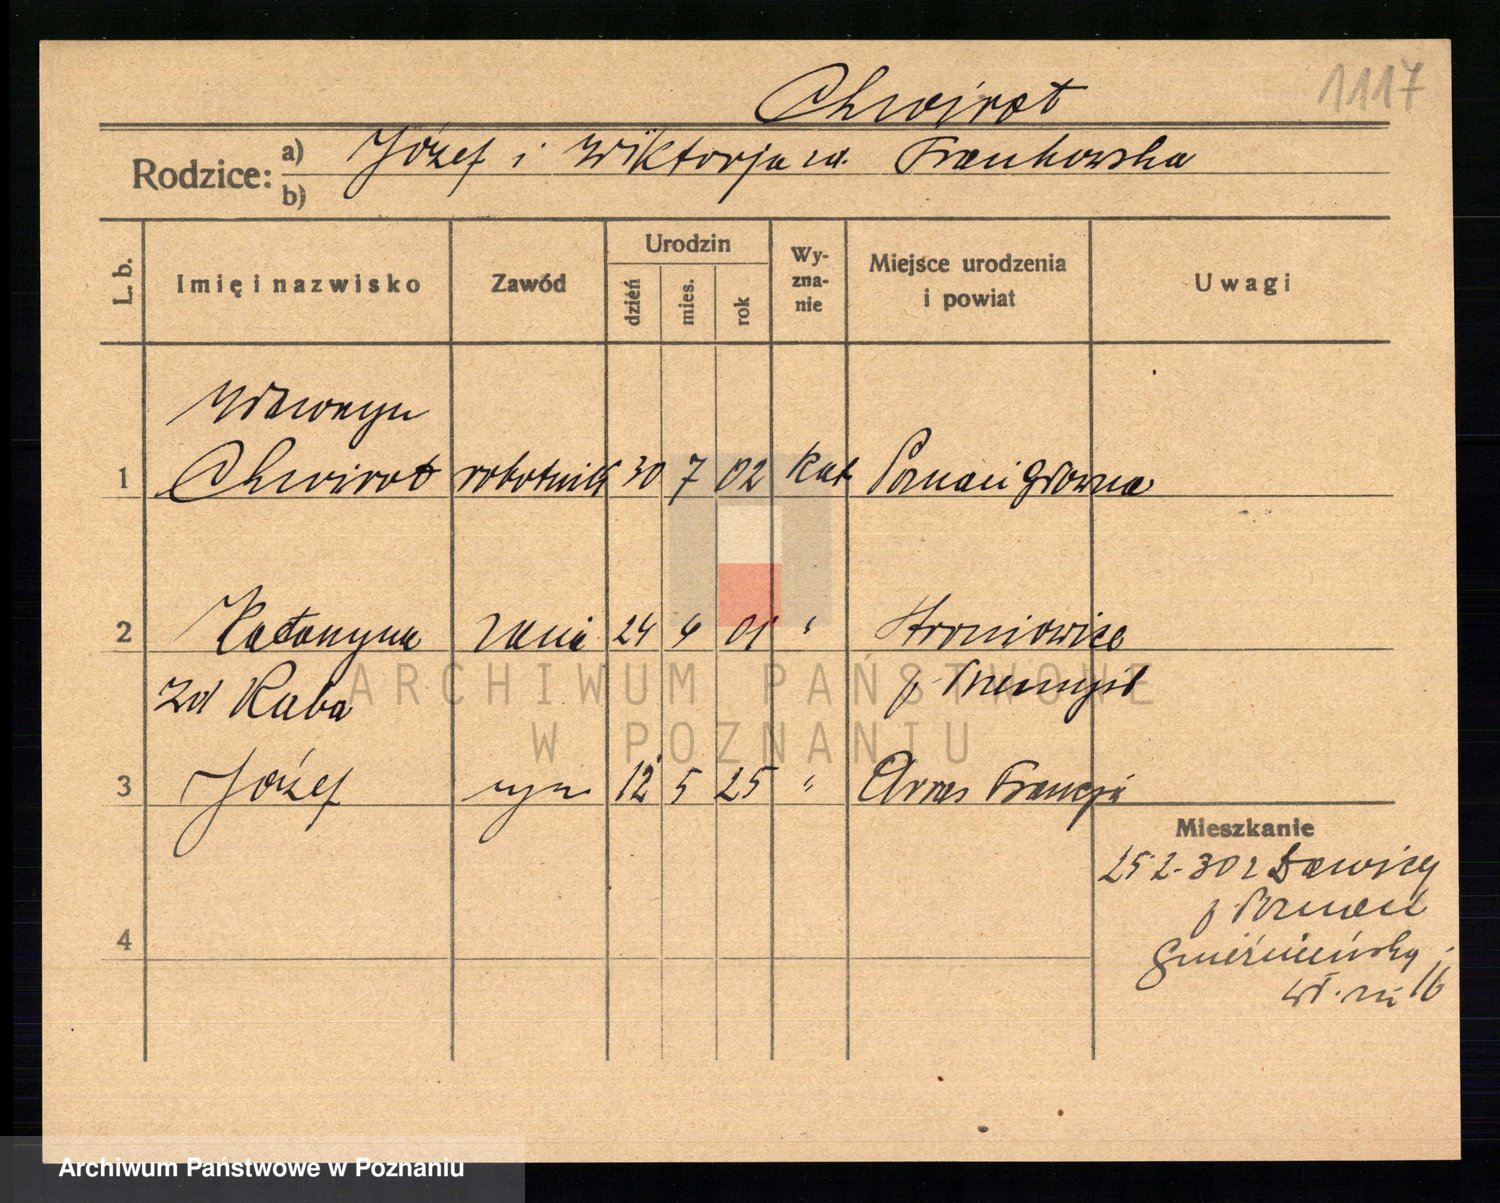 1117
Chwirot
Rodzice: a) Józef i Wiktorja zd. Frankowska
b)
L. b. Imię i nazwisko Zawód Urodzin dzień mies. rok Wyznanie Miejsce urodzenia i powiat Uwagi
Wawrzyn
1 Chwirot robotnik 30 7 02 kat Poznań Główna
2 Katarzyna żona 24 4 01 "
zd Kuba
3 Józef syn 12 5 25 " Arras Francja
Mieszkanie
25 2-30 z Ławicy
p Poznań
4
Gnieźnieńska
16
ARCHIWUM PAŃSTWOWE
W POZNANIU
Archiwum Państwowe w Poznaniu